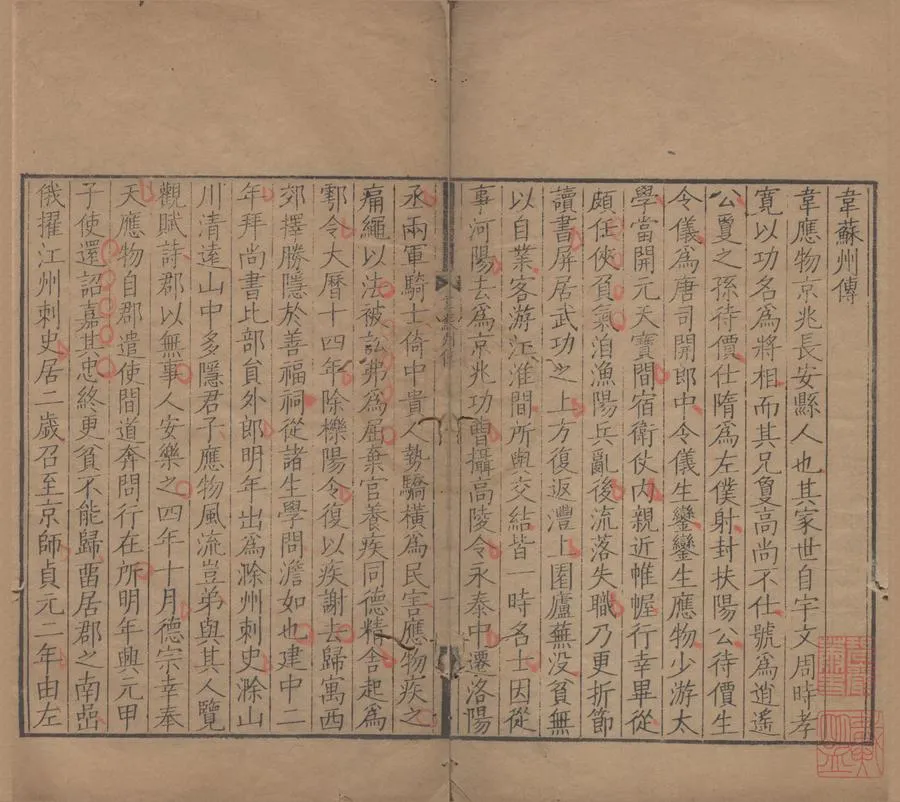 韋蘇州傳
韋應物京兆長安縣人也其家世自宇文周時孝
寬以功名為將相而其兄敻高尚不仕號為逍遙
公敻之孫待價仕隋為左僕射封扶陽公待價生
令儀為唐司開郎中令儀生鑾鑾生應物少游太
學當開元天寶間宿衛仗內親近帷幄行幸畢從
頗任俠負氣洎漁陽兵亂後流落失職乃更折節
讀書屏居武功之上方復返灃上園廬蕪沒貧無
以自業客游江淮間所與交結皆一時名士因從
事河陽去為京兆功曹攝高陵令永泰中遷洛陽
韋蘇州傳
一
丞兩軍騎士倚中貴人勢驕橫為民害應物疾之
痛繩以法被訟弗為屈棄官養疾同德精舍起為
鄠令大曆十四年除櫟陽令復以疾謝去歸寓西
郊擇勝隱於善福祠從諸生學問澹如也建中二
年拜尚書比部員外郎明年出為滁州刺史滁山
川清遠山中多隱君子應物風流豈弟與其人覽
觀賦詩郡以無事人安樂之四年十月德宗幸奉
天應物自郡遣使間道奔問行在所明年興元甲
子使還詔嘉其忠終更貧不能歸畱居郡之南嵒
俄擢江州刺史居二歲召至京師貞元二年由左